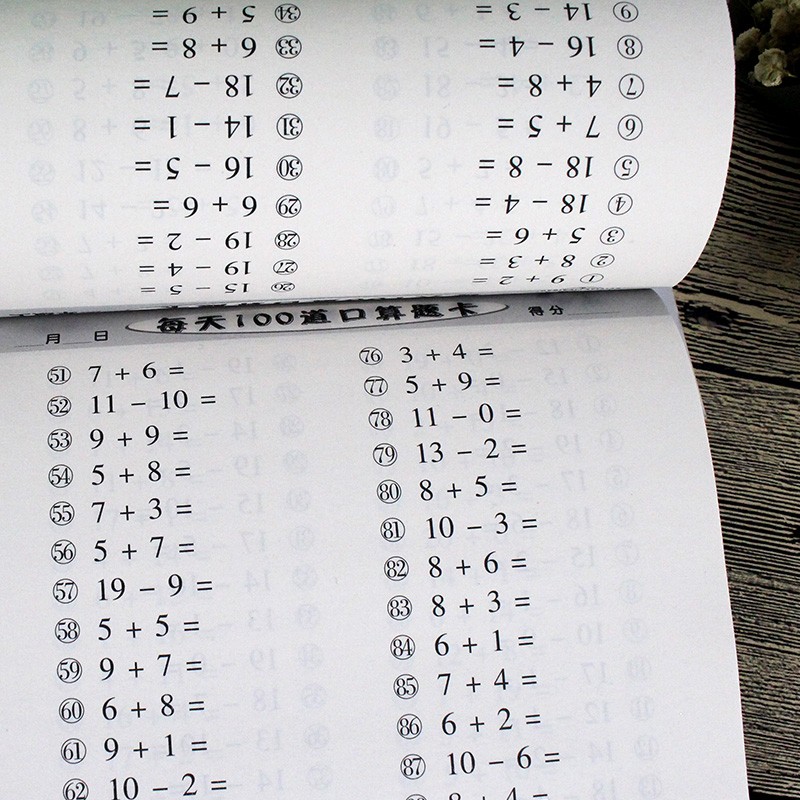 ① 9 + 2 =
② 8 + 3 =
③ 5 + 6 =
④ 18 − 4 =
⑤ 18 − 8 =
⑥ 7 + 5 =
⑦ 4 + 8 =
⑧ 16 − 4 =
⑨ 14 − 3 =
㉖ 15 − 5 =
㉗ 19 − 4 =
㉘ 19 − 2 =
㉙ 6 + 6 =
㉚ 16 − 5 =
㉛ 14 − 1 =
㉜ 18 − 7 =
㉝ 6 + 8 =
㉞ 5 + 9 =
月 日 每天100道口算题卡 得分
(51) 7 + 6 =
(52) 11 − 10 =
(53) 9 + 9 =
(54) 5 + 8 =
(55) 7 + 3 =
(56) 5 + 7 =
(57) 19 − 9 =
(58) 5 + 5 =
(59) 9 + 7 =
(60) 6 + 8 =
(61) 9 + 1 =
(62) 10 − 2 =
(76) 3 + 4 =
(77) 5 + 9 =
(78) 11 − 0 =
(79) 13 − 2 =
(80) 8 + 5 =
(81) 10 − 3 =
(82) 8 + 6 =
(83) 8 + 3 =
(84) 6 + 1 =
(85) 7 + 4 =
(86) 6 + 2 =
(87) 10 − 6 =
8 + 4 =